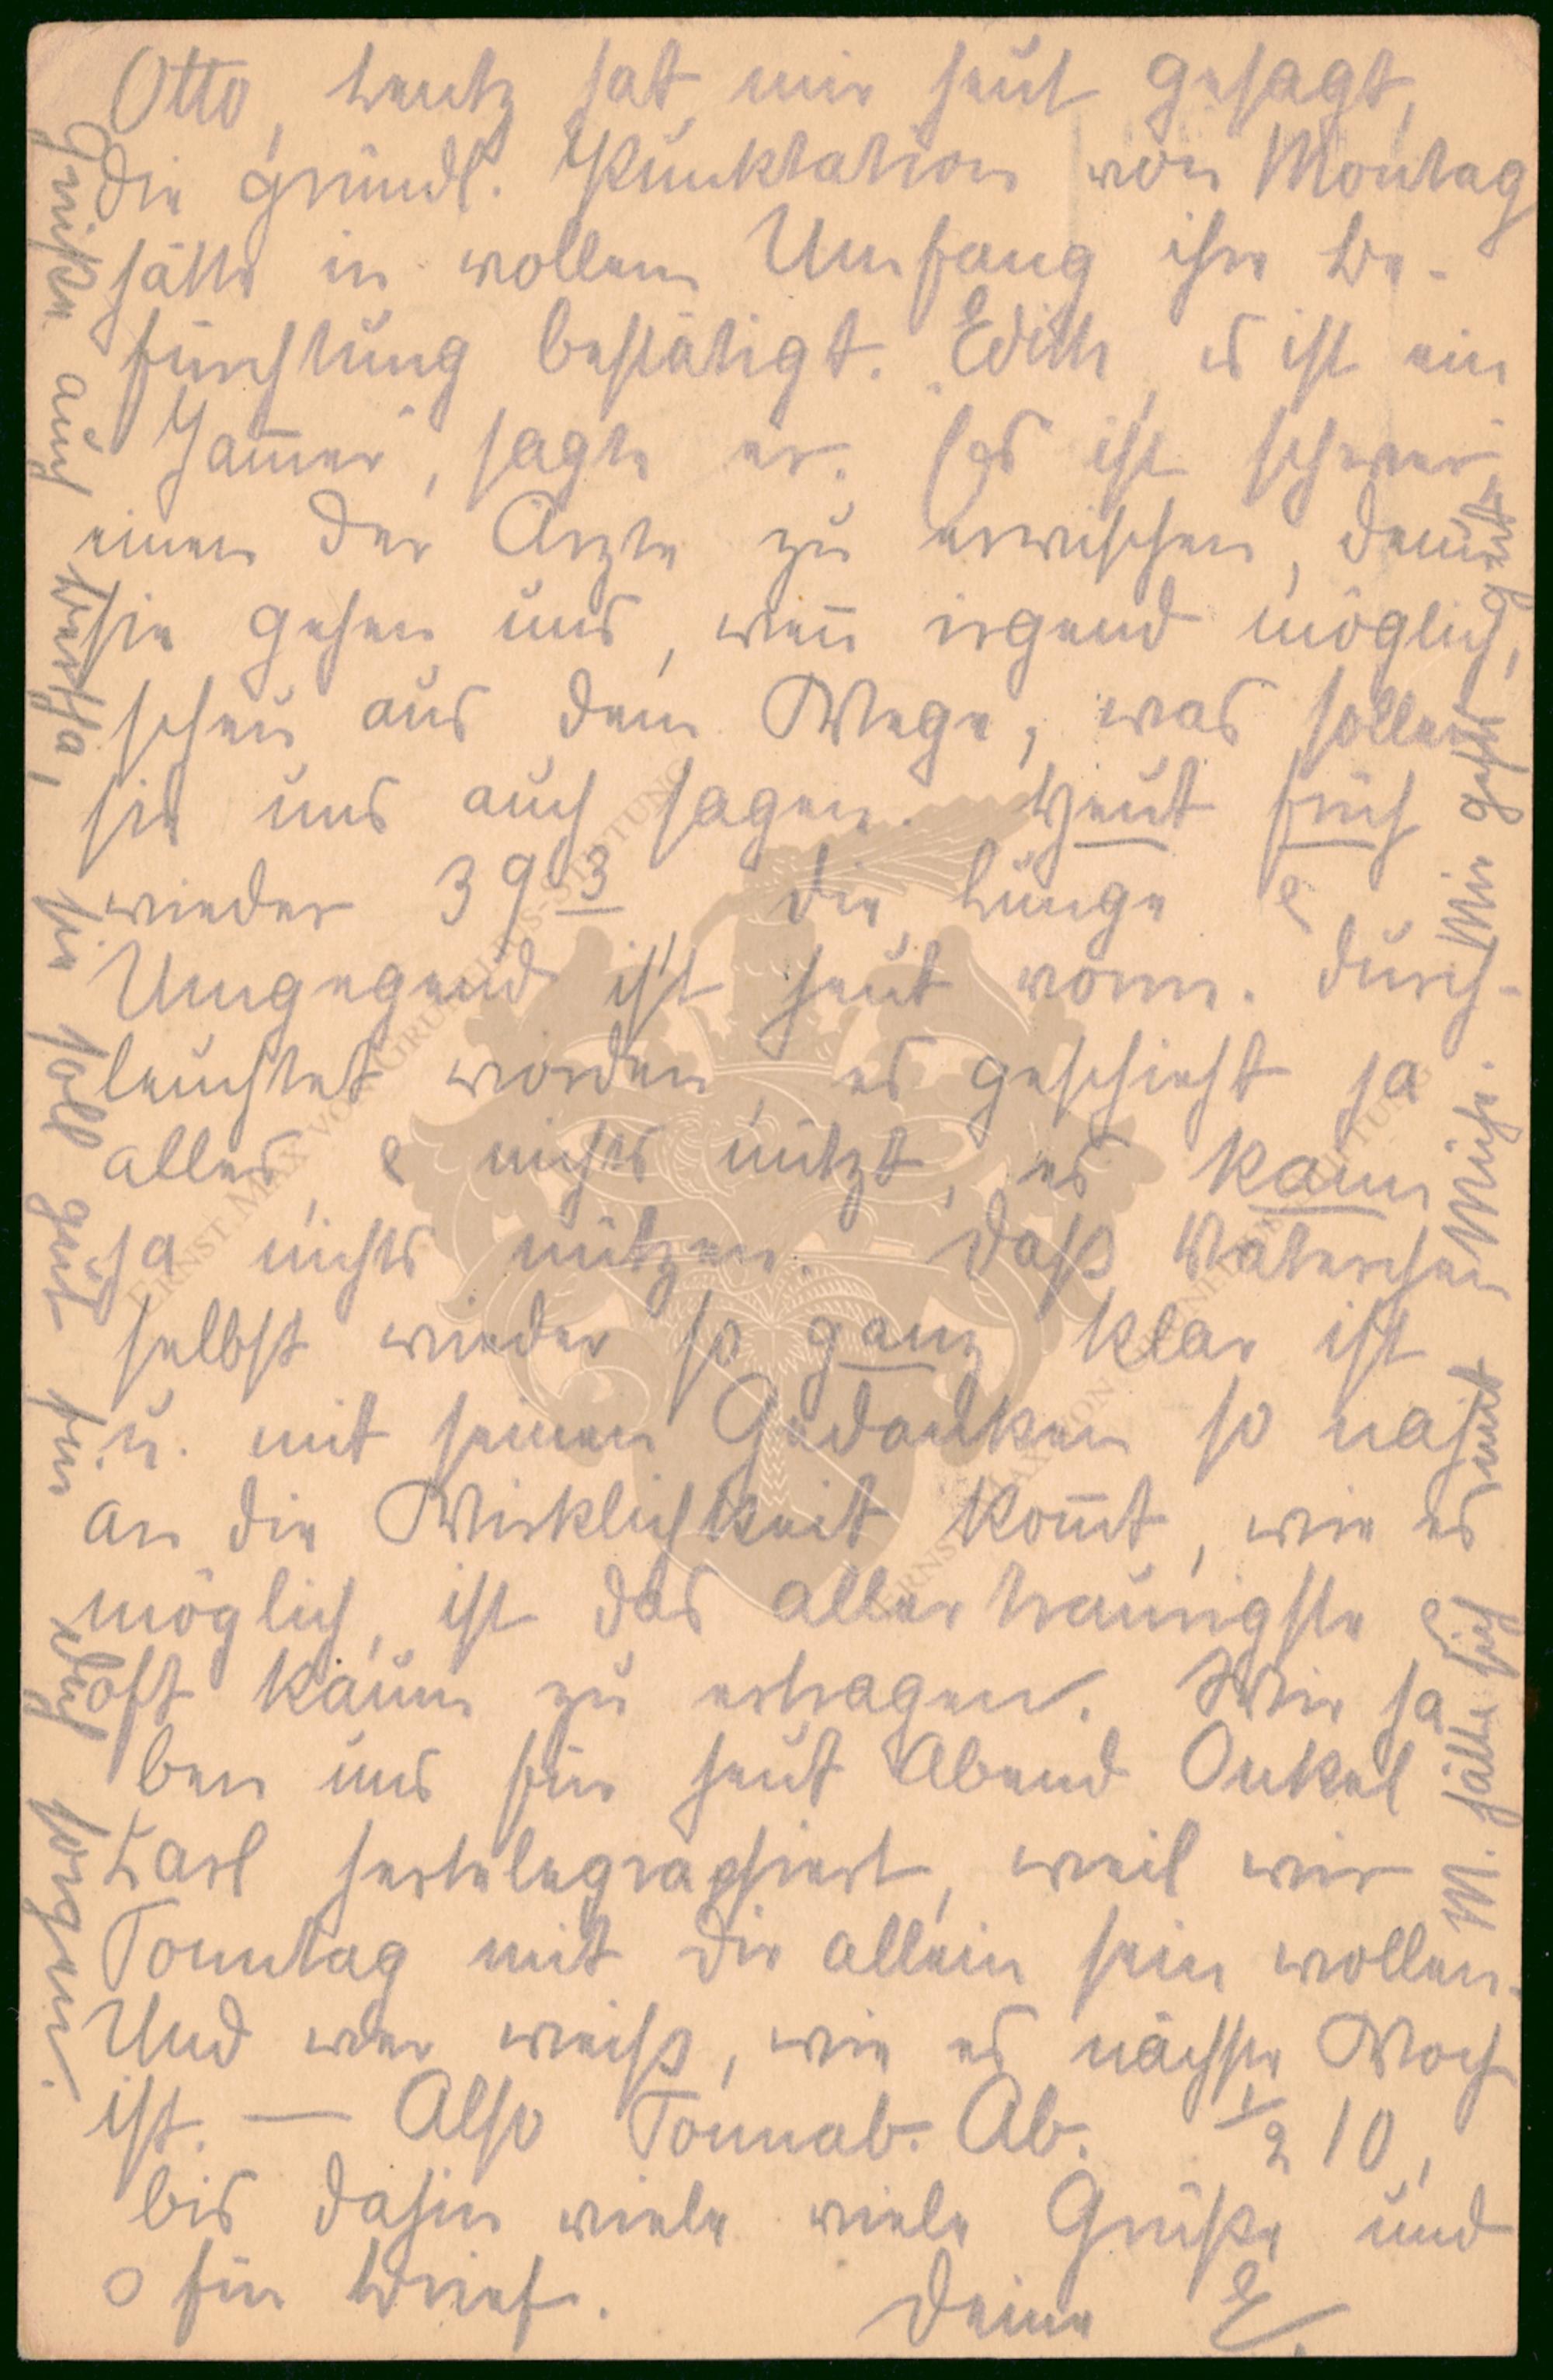 Otto, Lentz hat mir heut gesagt,
die gründl. Punktation von Montag
hätte in vollem Umfang ihre Be-
fürchtung bestätigt. „Edith, es ist ein
Jam̄er", sagte er. Es ist schwer,
einen der Ärzte zu erwischen, denn
sie gehen uns, wen̄ irgend möglich,
scheu aus dem Wege, was sollen
sie uns auch sagen. Heut früh
wieder 39³ die Lunge
Umgegend ist heut vorm. durch-
leuchtet worden, es geschieht ja
alles, nichts nützt, es kann
ja nichts nützen. Daß Vaterchen
selbst wieder so ganz klar ist
u. mit seinen Gedanken so nah
an die Wirklichkeit kom̄t, wie es
möglich, ist das allertraurigste
oft kaum zu ertragen. Wir ha
ben uns für heut Abend Onkel
Carl hertelegraphiert, weil wir
Sonntag mit Dir allein sein wollen.
Und wer weiß, wie es nächste Woch
ist. — Also Sonnab. Ab. ½ 10,
bis dahin viele viele Grüße und
o für Brief. Deine E.
Grüße auch Bertha, sie soll gut für Dich sorgen.
M. hält sich mit Mühe. Mir geht's gut.